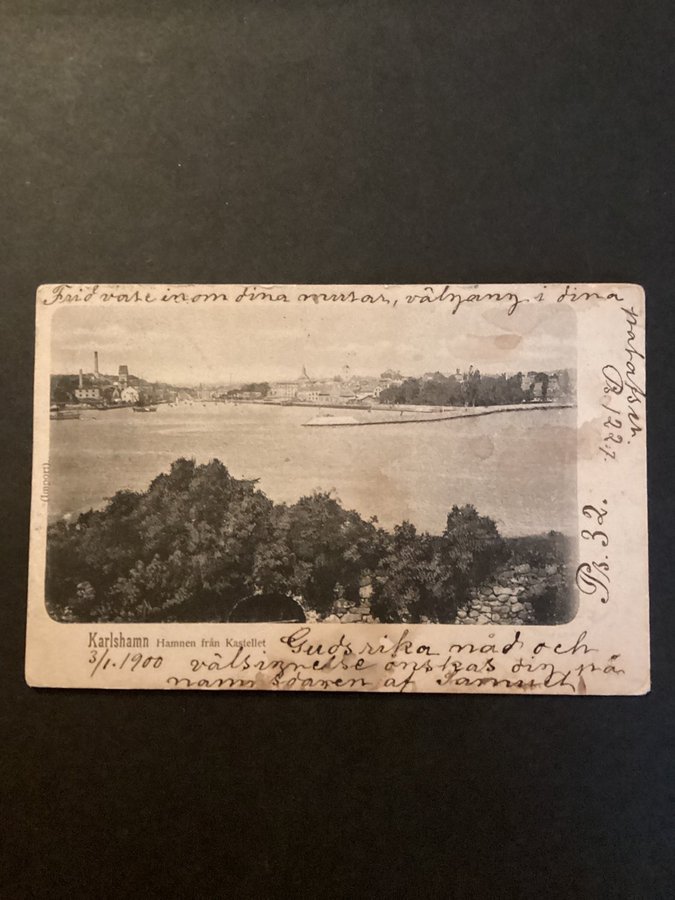 Frid vare inom dina murar, välgång i dina
palatsen.
Ps. 122.7.
Ps. 32.
(Import).
Karlshamn Hamnen från Kastellet
3/1.1900
Guds rika nåd och
välsignelse önskas dig på
namnsdagen af Samuel